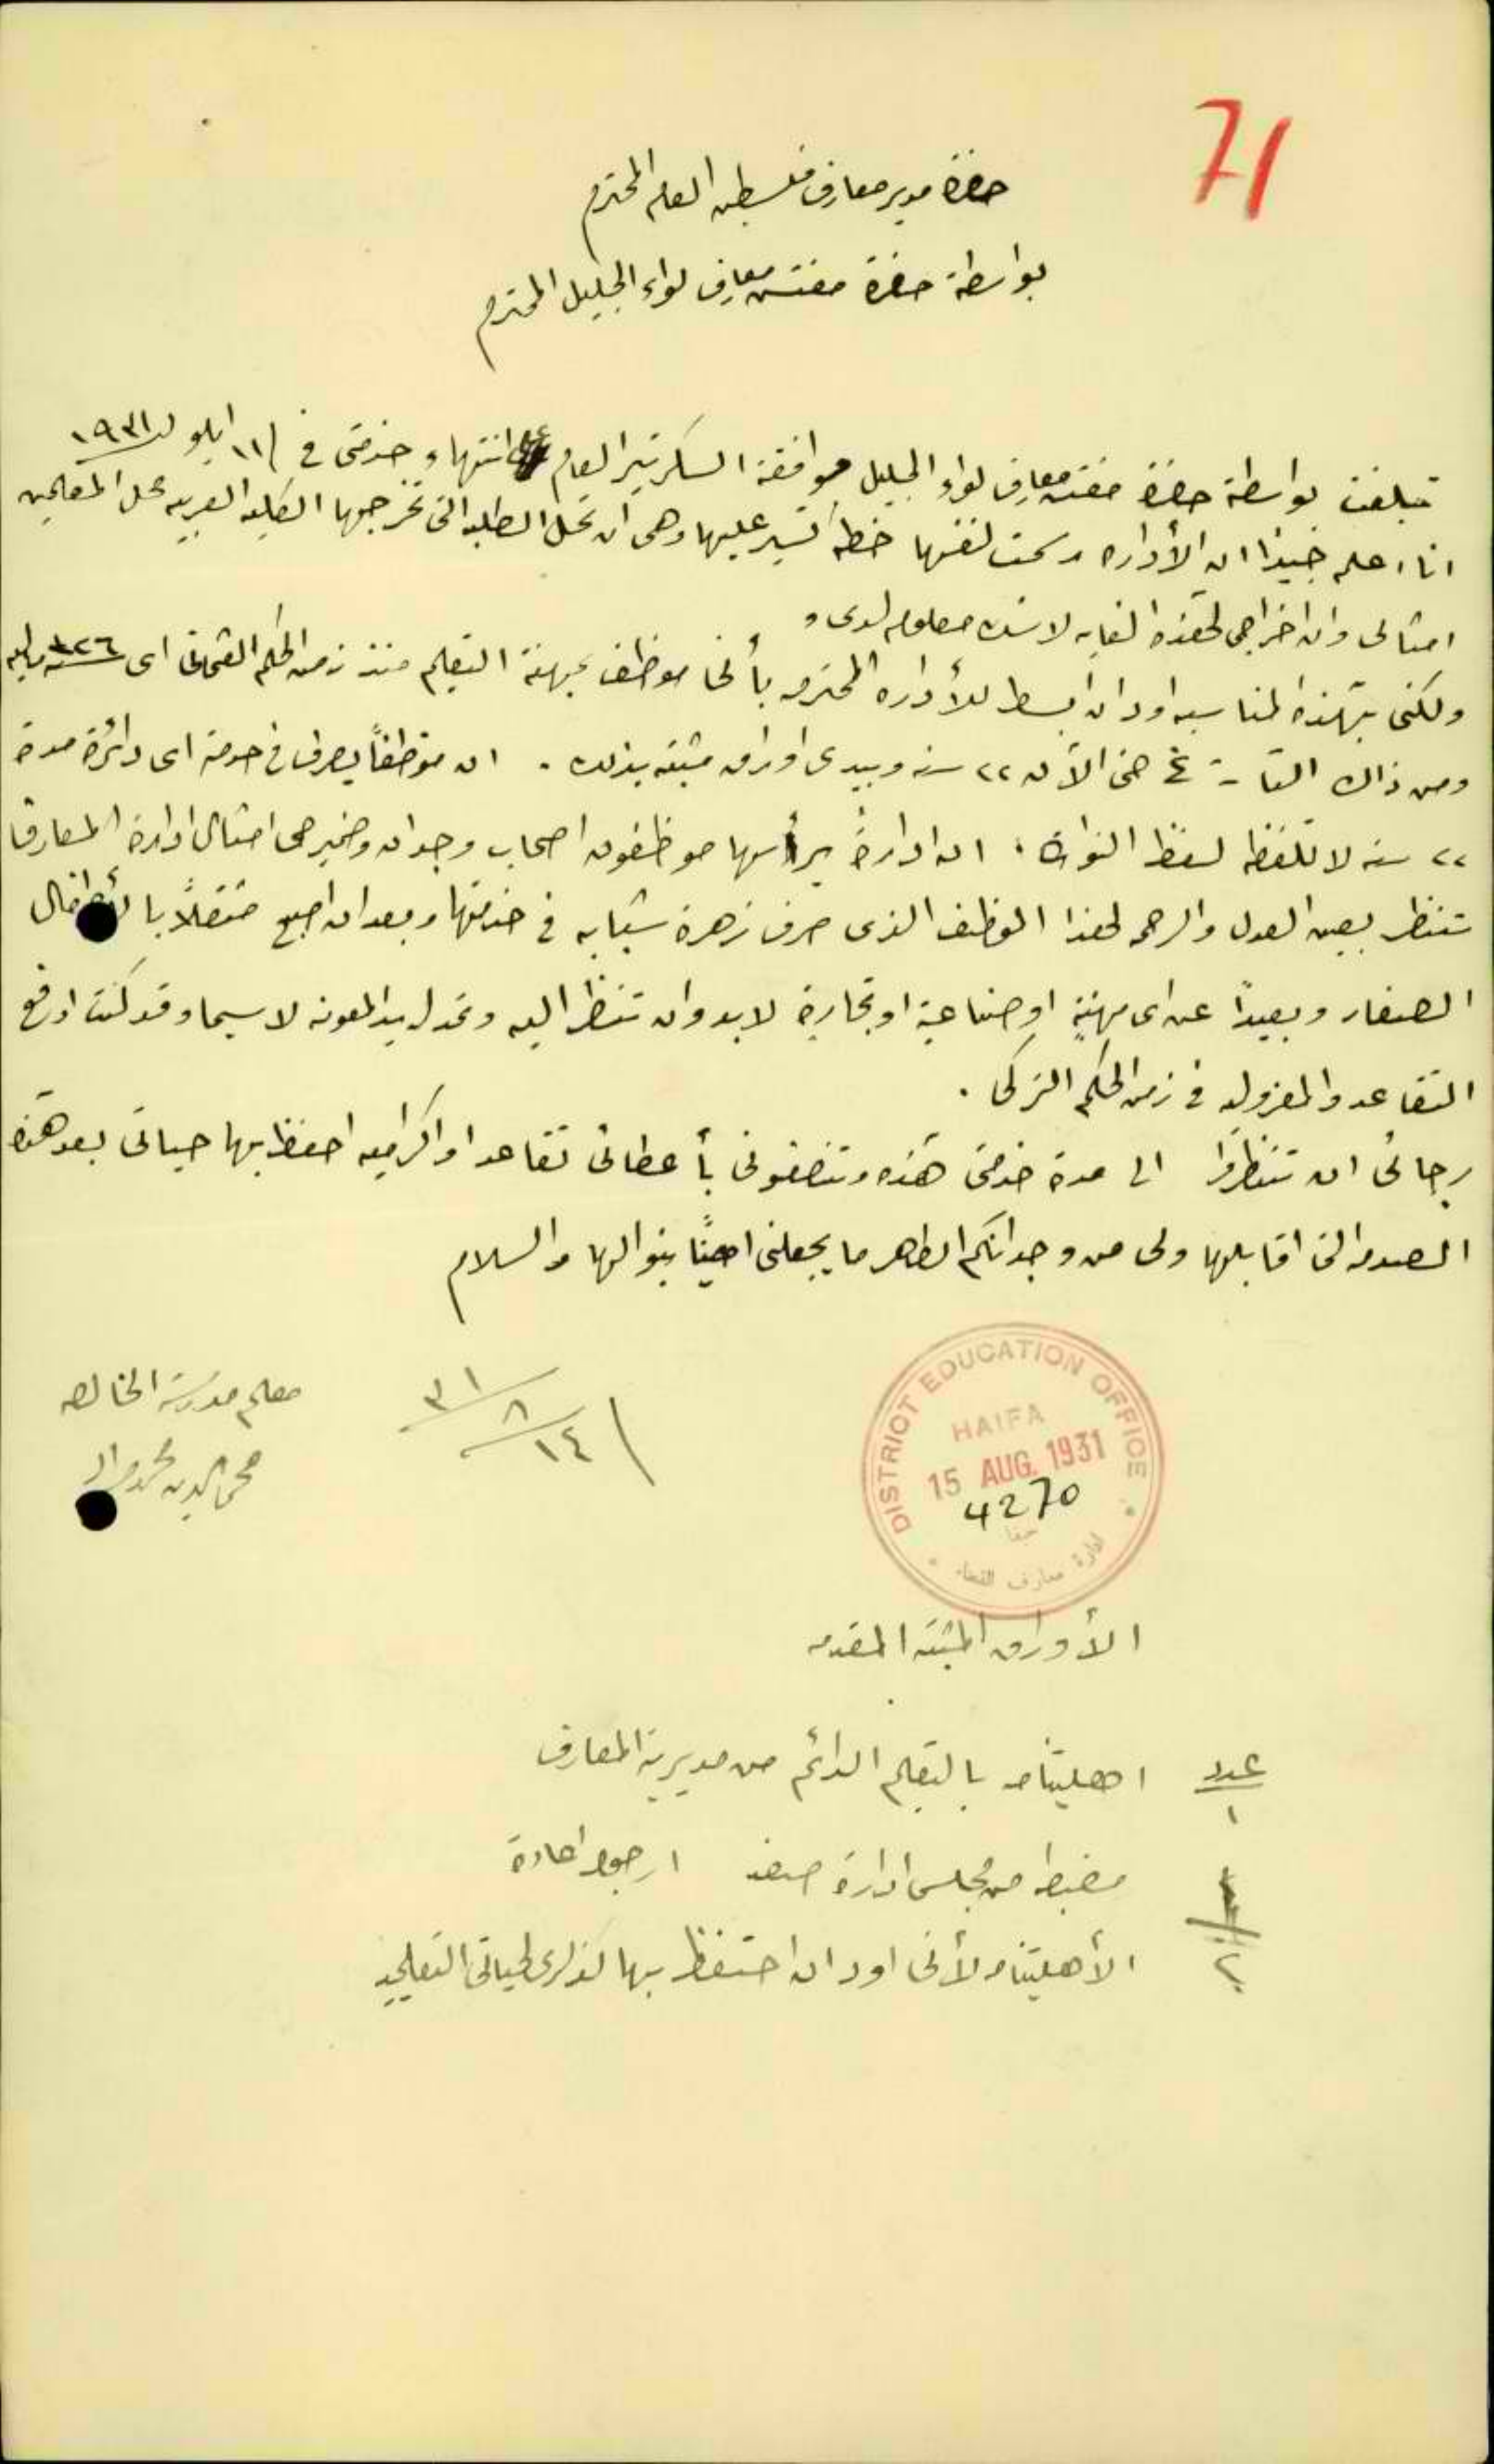 71
حضرة مدير معارف فلسطين العام المحترم
بواسطة حضرة مفتش معارف لواء الجليل المحترم
تبلغت بواسطة حضرة مفتش معارف لواء الجليل موافقة السكرتير العام على انتهاء خدمتي في ١١ ايلول ١٩٣١
انا اعلم جيدا ان الأداره رسمت لنفسها خطه تسير عليها وهي ان تحل الطلبه التي تخرجها الكليه العربيه محل المعلمين
امثالي وان اخراجي لهذه الغايه لاشك معلوم لدي و
ولكني بهذه المناسبه اود ان ابسط للأداره المحترمه بأني موظف بمهنة التعليم منذ زمن الحكم العثماني اي ٣٢٦ ماليه
ومن ذاك التاريخ حتى الآن ٢٢ سنه وبيدي اوراق مثبته بذلك . ان موظفاً يصرف في خدمة اي دائرة مدة
٢٢ سنه لا تلفظه لفظ النواة . ان ادارة يرأسها موظفون اصحاب وجدان وضمير حي امثال ادارة المعارف
تنظر بعين العدل والرحمه لهذا الموظف الذي صرف زهرة شبابه في خدمتها وبعد ان اصبح متصلاً بالأطفال
الصغار وبعيداً عن اي مهنةٍ او صناعية او تجارية لابد وان تنظر اليه وتمد له يد المعونه لاسيما وقد كنت ادفع
التقاعد والمعزوليه في زمن الحكم التركي .
رجائي ان تنظروا الى مدة خدمتي هذه وتنصفوني بأعطائي تقاعدا او اكراميه احفظ بها حياتي بعد هذه
الصدمه التي اقابلها ولي من وجدانكم الطاهر ما يجعلني اميناً بنوالها والسلام
١٤/٨/٣١
معلم مدرسة الخالصه
محي الدين
DISTRICT EDUCATION OFFICE
HAIFA
15 AUG. 1931
4270
حيفا
ادارة معارف القضاء
الأوراق المثبته المقدمه
عدد
١ اهليتنامه بالتعليم الدائم من مديرية المعارف
١ مضبطه من مجلس ادارة صفد ارجو اعادة
٢ الأهليتنامه لأني اود ان احتفظ بها كذكرى لحياتي التعليميه